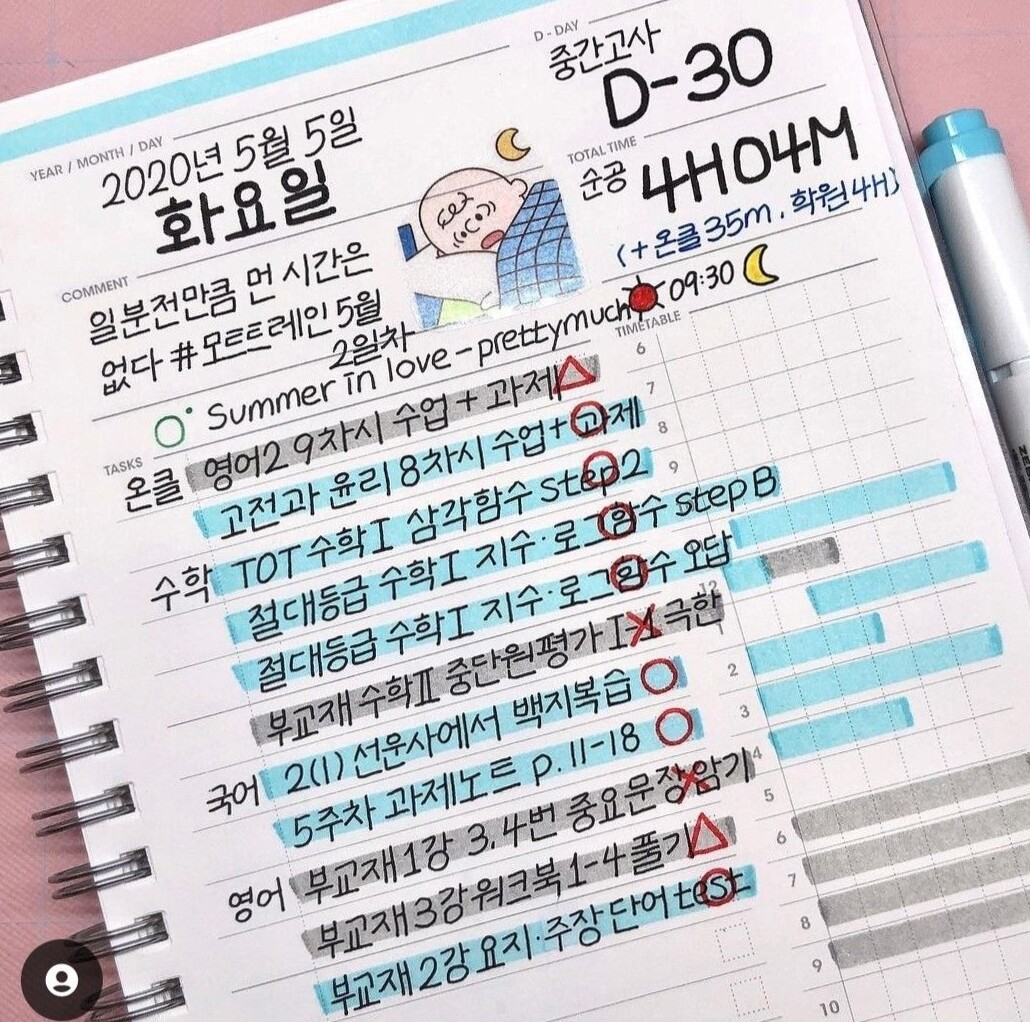 D-DAY
중간고사
D-30
YEAR / MONTH / DAY
2020년 5월 5일
화요일
TOTAL TIME
순공 4H04M
(+온클 35m, 학원 4H)
COMMENT
일분전만큼 먼 시간은
없다 #모트트레인 5월
2일차
Summer in love - prettymuch
09:30
TIMETABLE
TASKS
온클 영어2 9차시 수업 + 과제
고전과 윤리 8차시 수업 + 과제
수학 TOT 수학I 삼각함수 step2
절대등급 수학I 지수·로그함수 step B
절대등급 수학I 지수·로그함수 오답
부교재 수학II 중단원평가 I-1 극한
국어 2(1) 선운사에서 백지복습
5주차 과제노트 p.11-18
영어 부교재 1강 3, 4번 중요문장암기
부교재 3강 워크북 1-4 풀기
부교재 2강 요지·주장 단어 test
6
7
8
9
12
1
2
3
4
5
6
7
8
9
10